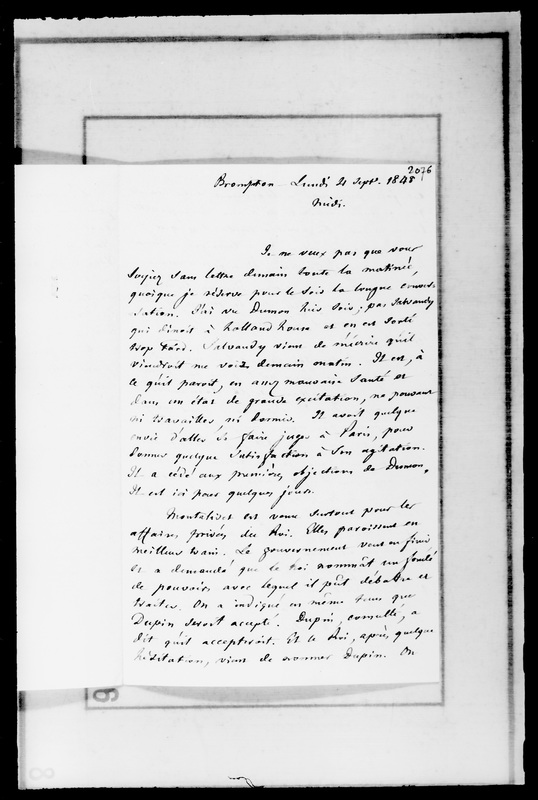 2076
Brompton Lundi 4 Sept. 1848
Midi.
Je ne veux pas que vous
soyiez sans lettre demain toute la matinée,
quoique je réserve pour le soir la longue conver-
sation. J'ai vu Dumon hier soir; pas Salvandy
qui dinoit à Holland house et en est sorti
trop tard. Salvandy vient de m'écrire qu'il
viendroit me voir demain matin. Il est, à
ce qu'il paroit, en assez mauvaise santé et
dans un état de grande excitation, ne pouvant
ni travailler, ni dormir. Il avoit quelque
envie d'aller se faire juger à Paris, pour
donner quelque satisfaction à son agitation.
Il a cédé aux premières objections de Dumon.
Il est ici pour quelques jours.
Montalivet est venu surtout pour les
affaires privées du Roi. Elles paroissent en
meilleur train. Le gouvernement veut en finir
et a demandé que le Roi nommât un fondé
de pouvoirs avec lequel il pût débattre et
traiter. On a indiqué en même tems que
Dupin seroit accepté. Dupin, consulté, a
dit qu'il accepteroit. Et le Roi, après quelque
hésitation, vient de nommer Dupin. On